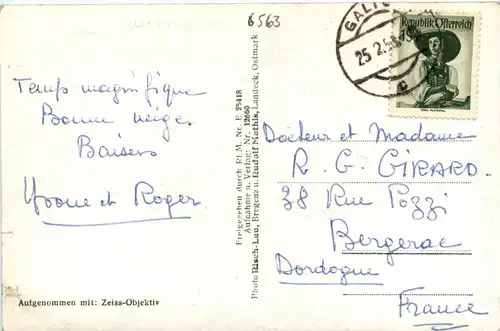 6563
Temps magnifique
Bonne neige.
Baisers
Yvonne et Roger
Aufgenommen mit: Zeiss-Objektiv
Freigegeben durch RLM. Nr. E 25418
Aufnahme u. Verlag: Nr. 12660
Photo Risch-Lau, Bregenz u. Rudolf Mathis, Landeck, Ostmark
25.2.5
c
Republik Österreich
Docteur et Madame
R. G. GIRARD.
38 Rue Pozzi
Bergerac
Dordogne
France